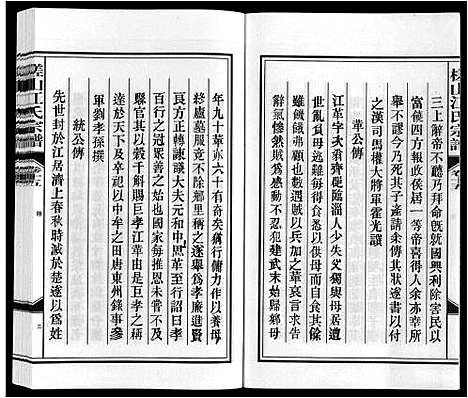 槎山江氏宗譜
卷之五
三上辭帝不聽乃拜命旣就國興利除害民以
富饒四方宿報政侯居一等帝喜得人亦幸所
舉不謬今乃死其子產請余傳其狀遂書以付
之漢司馬權大將軍霍光譔
江革公傳
江革字次翁齊郡臨淄人少失父與母居遭
世亂負母逃難每採拾以供母而自食其餘
雖饑餓弗顧也數遇賊或以兵加之革哀言求哀
辭氣愴然賊爲感動不忍犯建武末始歸鄉母
年九十革亦六十有奇矣猶行傭力作以養母
終廬墓服竟不忍除鄉里稱之遂舉爲孝廉賢
良方正轉諫議大夫以老辭歸元和至行詔曰孝
百行之冠衆善之始也國家每推恩未嘗不及
縣官其以穀千斛賜巨孝江革由是巨孝之稱
達於天下及卒祀以中牢之田唐東州錄事參
軍劉孝孫撰
統公傳
先世封於江居濟上春秋時滅於楚遂以爲姓
槎山江氏宗譜
卷之五
傳
三